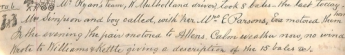 to b Mr Ryans Team, H. Mulholland driver, took 8 bales - the last today
Mr Simpson and boy called, with her Mrs E. Parsons, Ives motored them
In the evening the pair motored to Allens. Calm weather now, no wind
Wrote to Williams Kettle, giving a description of the 15 bales wool